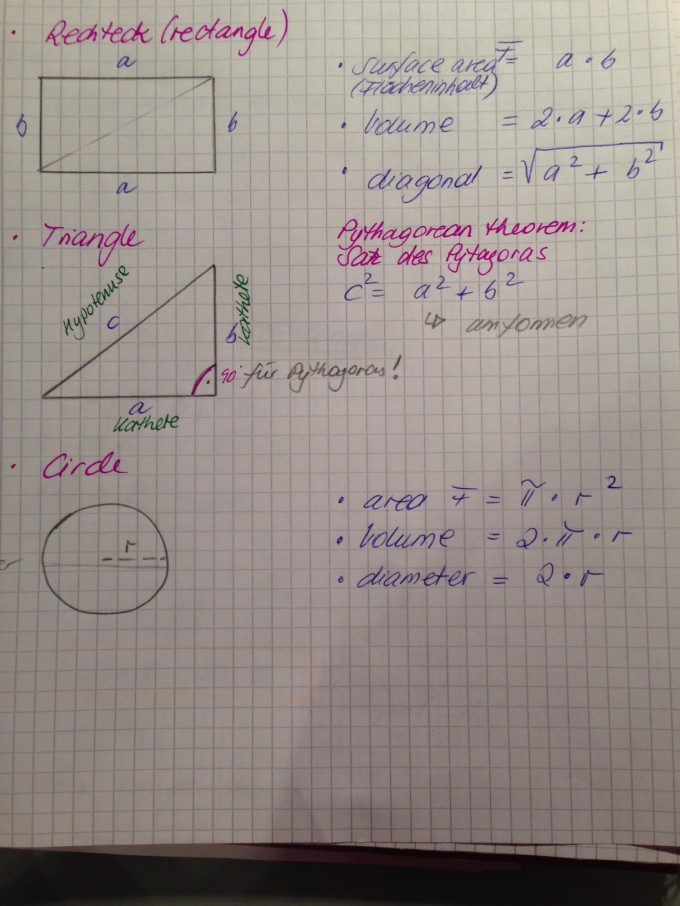 • Rechteck (rectangle)
a
b
b
a
• surface area F = a · b
(Flächeninhalt)
• Volume = 2·a + 2·b
• diagonal = √a² + b²
• Triangle
Hypotenuse
c
b
Kathete
90°
a
Kathete
für Pythagoras!
Pythagorean theorem:
Satz des Pytagoras
c² = a² + b²
↳ umformen
• Circle
r
er
• area F = π · r²
• Volume = 2·π·r
• diameter = 2·r